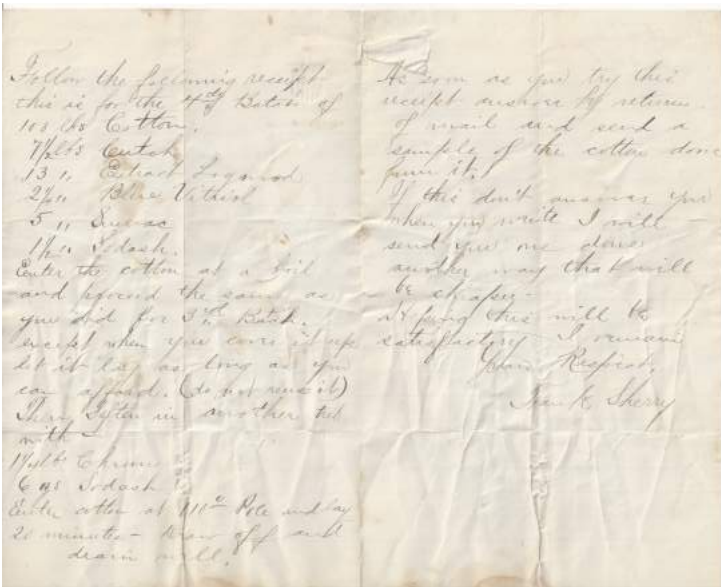 Follow the following receipt
this is for the 4th Batch of
100 lbs Cotton.
7½ lbs Cutch
13 " Extract Logwood
2½ " Blue Vitriol
5 " Sumac
1½ " Sodash.
Enter the cotton at a boil
and proceed the same as
you did for 3rd Batch.
except when you it up
let it lay as long as you
can afford. (do not rinse it)
Then in another tub
with —
lbs Chrome
6 ozs Sodash
Enter cotton at 110° Pole and lay
20 minutes — Draw off and
drain well.
As soon as you try this
receipt answer by return
of mail and send a
sample of the cotton done
from it.
If this don't answer you
when you write I will
send you one done
another way that will
be cheaper —
Hoping this will be
satisfactory I remain
Yours Respect.
Sherry